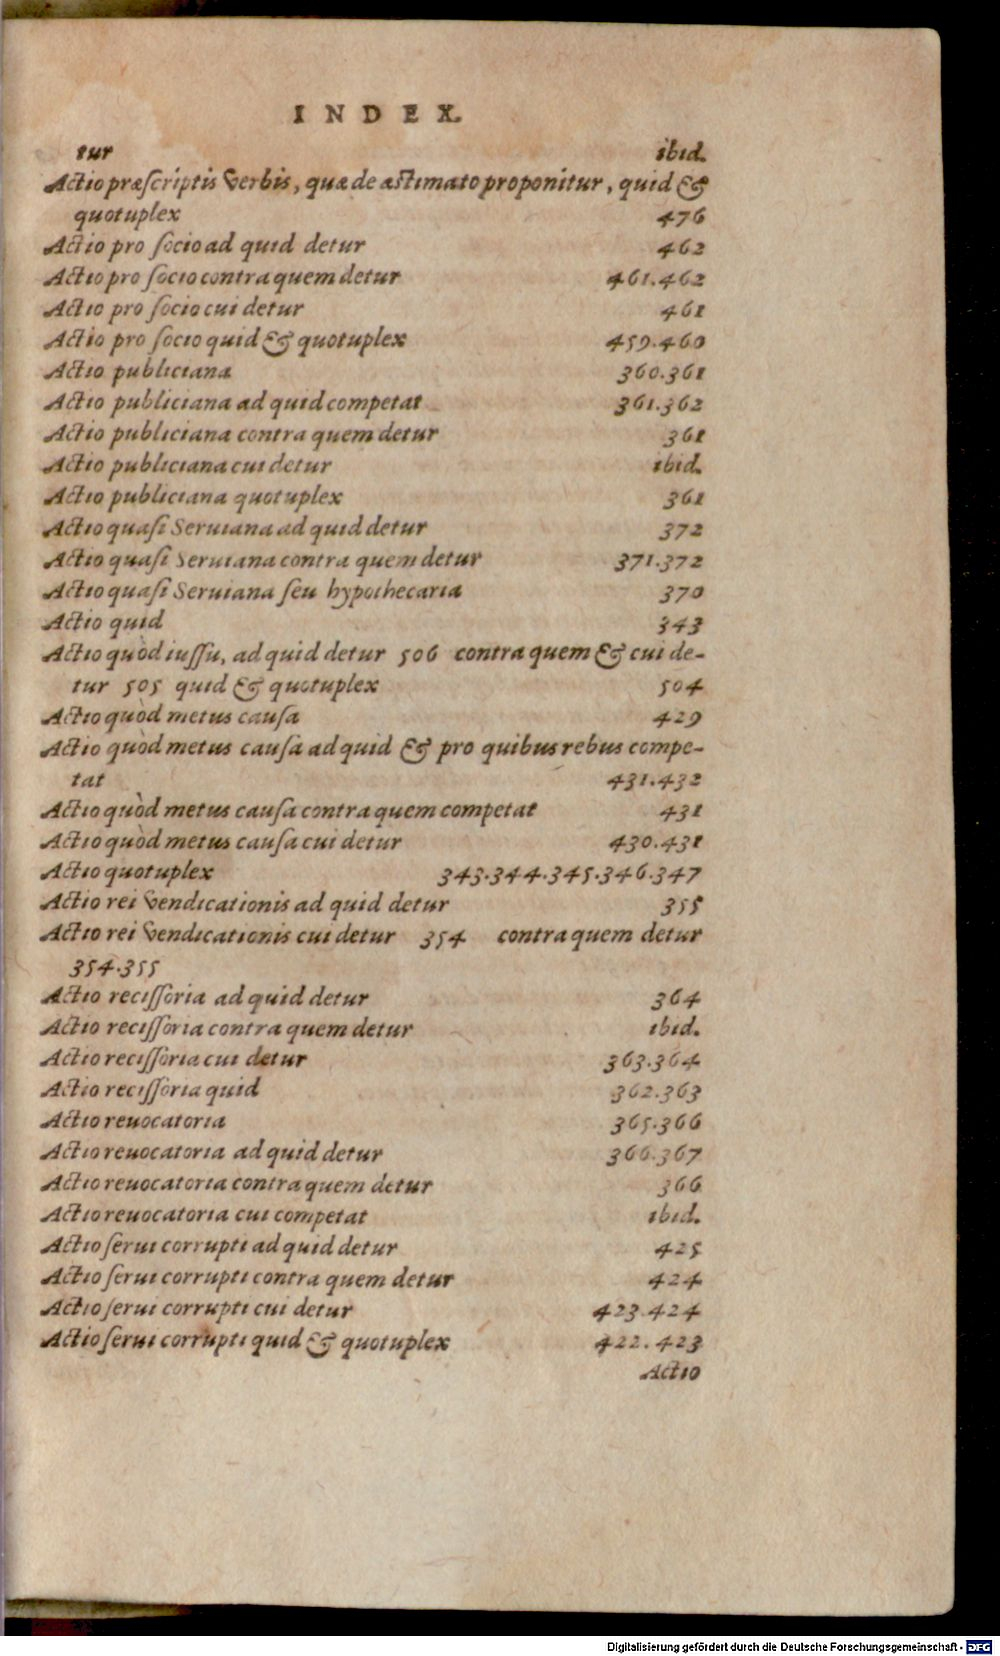 INDEX.
tur ibid.
Actio præſcriptis verbis, quæ de æſtimato proponitur, quid &
quotuplex 476
Actio pro ſocio ad quid detur 462
Actio pro ſocio contra quem detur 461.462
Actio pro ſocio cui detur 461
Actio pro ſocio quid & quotuplex 459.460
Actio publiciana 360.361
Actio publiciana ad quid competat 361.362
Actio publiciana contra quem detur 361
Actio publiciana cui detur ibid.
Actio publiciana quotuplex 361
Actio quaſi Seruiana ad quid detur 372
Actio quaſi Seruiana contra quem detur 371.372
Actio quaſi Seruiana ſeu hypothecaria 370
Actio quid 343
Actio quòd iuſſu, ad quid detur 506 contra quem & cui de-
tur 505 quid & quotuplex 504
Actio quòd metus cauſa 429
Actio quòd metus cauſa ad quid & pro quibus rebus compe-
tat 431.432
Actio quòd metus cauſa contra quem competat 431
Actio quòd metus cauſa cui detur 430.431
Actio quotuplex 343.344.345.346.347
Actio rei vendicationis ad quid detur 355
Actio rei vendicationis cui detur 354 contra quem detur
354.355
Actio reciſſoria ad quid detur 364
Actio reciſſoria contra quem detur ibid.
Actio reciſſoria cui detur 363.364
Actio reciſſoria quid 362.363
Actio reuocatoria 365.366
Actio reuocatoria ad quid detur 366.367
Actio reuocatoria contra quem detur 366
Actio reuocatoria cui competat ibid.
Actio ſerui corrupti ad quid detur 425
Actio ſerui corrupti contra quem detur 424
Actio ſerui corrupti cui detur 423.424
Actio ſerui corrupti quid & quotuplex 422.423
Actio
Digitalisierung gefördert durch die Deutsche Forschungsgemeinschaft - DFG